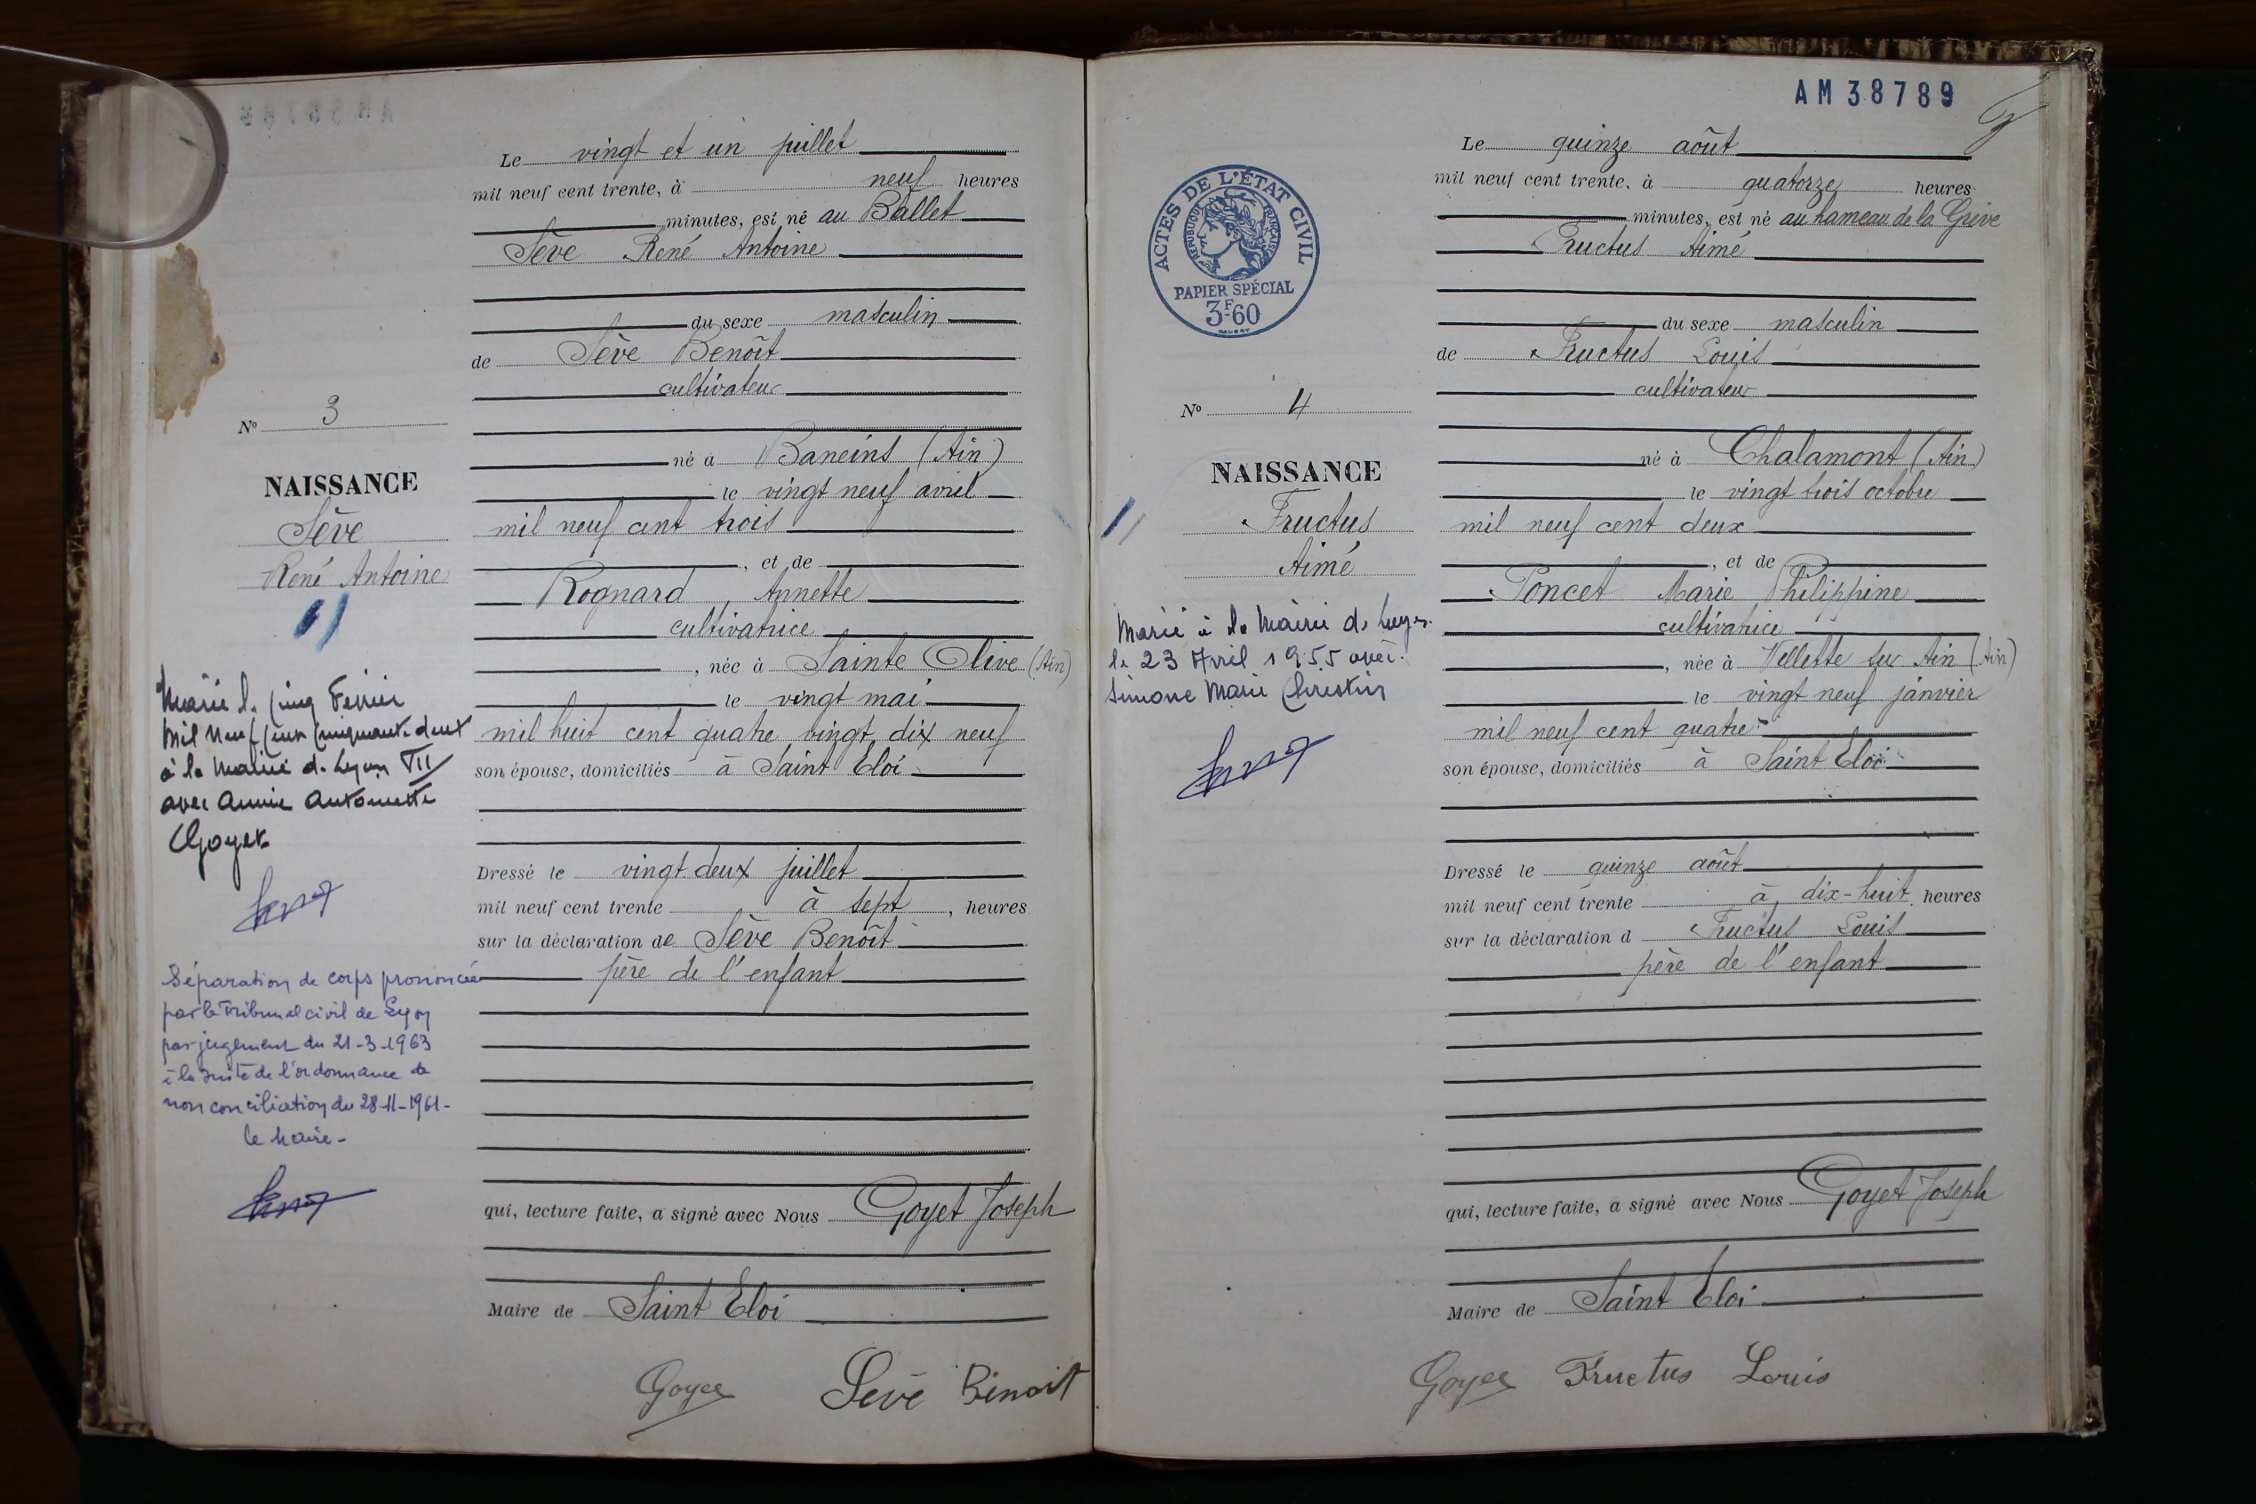 Le vingt et un juillet
mil neuf cent trente, à neuf heures
minutes, est né au Ballet
Sève René Antoine
du sexe masculin
de Sève Benoît
cultivateur
né à Baneins (Ain)
le vingt neuf avril
mil neuf cent trois
, et de
Rognard, Annette
cultivatrice
, née à Sainte Olive (Ain)
le vingt mai
mil huit cent quatre vingt dix neuf
son épouse, domiciliés à Saint Eloi
Dressé le vingt deux juillet
mil neuf cent trente à sept, heures
sur la déclaration de Sève Benoît
père de l'enfant
qui, lecture faite, a signé avec Nous Goyet Joseph
Maire de Saint Eloi
Goyet Sève Benoit
No 3
NAISSANCE
Sève
René Antoine
Marié le cinq Février
mil neuf cent cinquante deux
à la Mairie de Lyon VII
avec Annie Antoinette
Goyet
Séparation de corps prononcée
par le Tribunal civil de Lyon
par jugement du 21-3-1963
à la suite de l'ordonnance de
non conciliation du 28-11-1961-
le Maire-
AM38789
Le quinze août
mil neuf cent trente, à quatorze heures
minutes, est né au hameau de la Grive
Fructus Aimé
du sexe masculin
de Fructus Louis
cultivateur
né à Chalamont (Ain)
le vingt trois octobre
mil neuf cent deux
, et de
Poncet Marie Philippine
cultivatrice
, née à Villette sur Ain (Ain)
le vingt neuf janvier
mil neuf cent quatre
son épouse, domiciliés à Saint Eloi
Dressé le quinze août
mil neuf cent trente à dix-huit heures
sur la déclaration d Fructus Louis
père de l'enfant
qui, lecture faite, a signé avec Nous Goyet Joseph
Maire de Saint Eloi
Goyet Fructus Louis
ACTES DE L'ÉTAT CIVIL
RÉPUBLIQUE FRANÇAISE
PAPIER SPÉCIAL
3F60
No 4
NAISSANCE
Fructus
Aimé
Marié à la Mairie de
le 23 Avril 1955 avec
Simone Marie